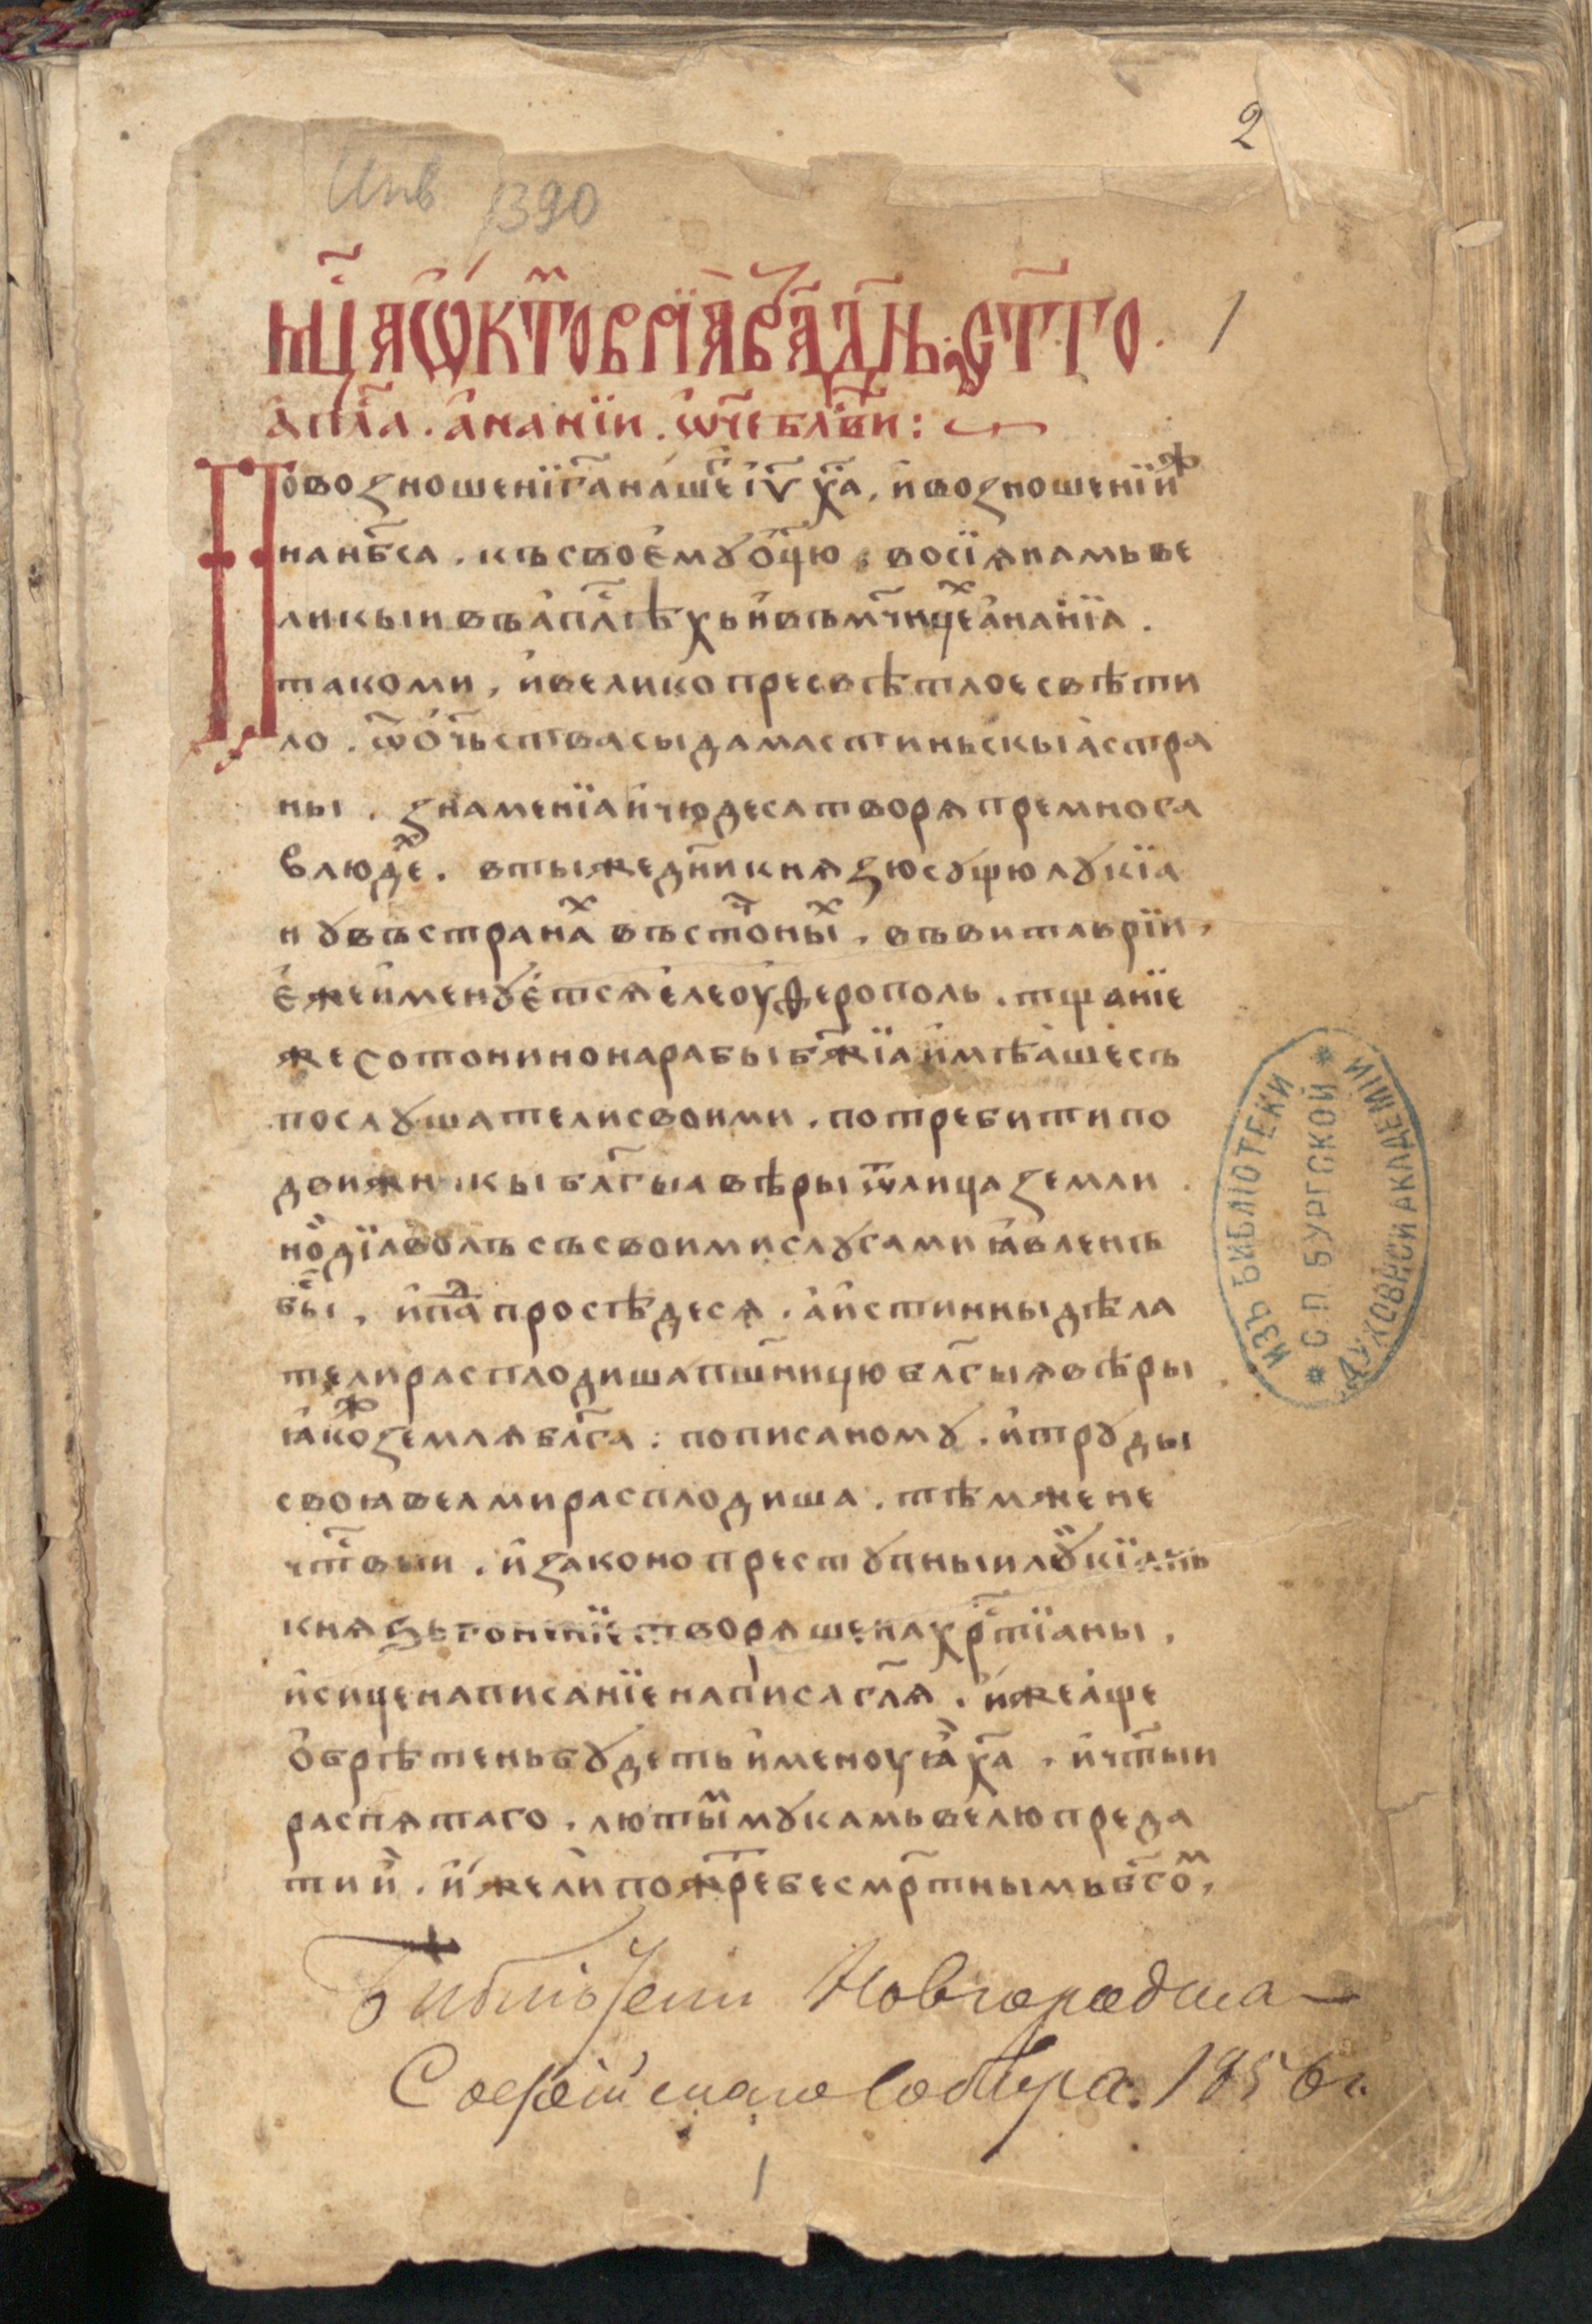 2
Инв 1390
мц҃а ѡктѡврїа в҃ а҃ дн҃ь. ст҃го. 1
ап҃ла. ананїи. ѡч҃е бл҃ви:
По возношенїи г҃а наше і҃у х҃а, и возношенїи ж
на нб҃са. къ своемꙋ ѻц҃ю, восїꙗ намь ве
ликыи въ ап҃лѣхь и въ мч҃ницѣх ананїа.
тако ми, и велико пресвѣтлое свѣти
ло. ѿ ѻч҃ьства сы дамастиньскыа стра
ны. знаменїа и чюдеса творѧ премнога
в люде. в ты же дн҃и кнѧзю сꙋщю лꙋкїа
нꙋ въ странах въсточныхъ, въ витаврїи,
еже именꙋетсѧ елеоуѳерополь. тщанїе
же сотонино на рабы бж҃їа имѣаше съ
послꙋшатели своими. потребити по
движникы бл҃гыа вѣры ѿ лица земли.
но дїаволъ съ своими слꙋгами ꙗвленъ
бы, и па просѣдесѧ. а истинны дѣла
тели расплодиша пшеницю бл҃гыѧ вѣры
ꙗкож землѧ бл҃га: по писаномꙋ. и трꙋды
своꙗ велми расплодиша. тѣмже не
чт҃выи. и законопрестꙋпныи лꙋкїань
кнѧзь гоненїе творѧше на хр҃тїаны,
и сице написанїе написа гл҃ѧ. иже аще
обрѣтень бꙋдеть именоуꙗ х҃а. и чт҃ыи
распѧтаго. лютым мꙋкамь велю преда
ти и. иже ли пожре бесмр҃тнымь бг҃ом,
Библіотеки Новгородска-
Софійскаго Собора. 1856 г.
1
ИЗЪ БИБЛІОТЕКИ
С.П.БУРГСКОЙ
ДУХОВНОЙ АКАДЕМІИ